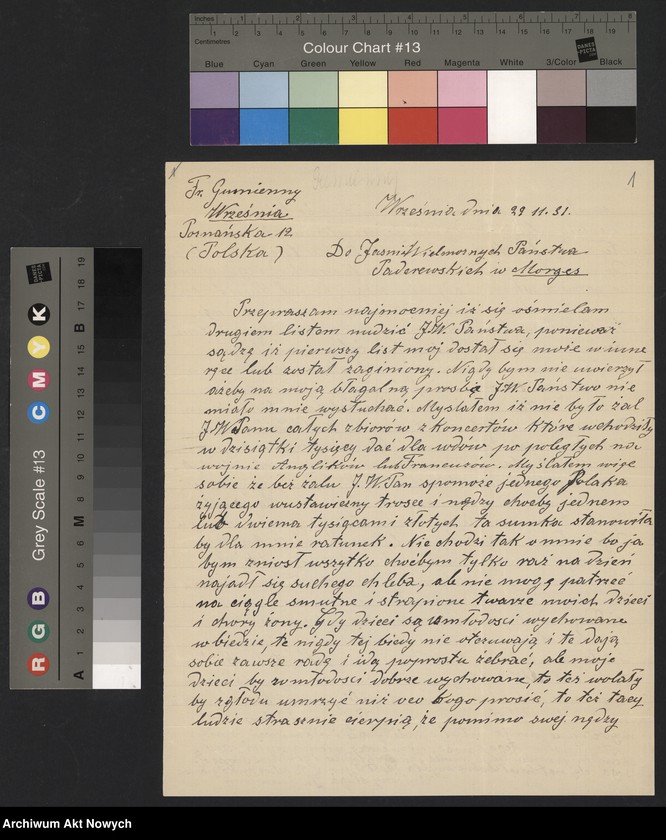 Inches 1 2 3 4 5 6 7 8
Centimetres 1 2 3 4 5 6 7 8 9 10 11 12 13 14 15 16 17 18 19
Colour Chart #13
Blue Cyan Green Yellow Red Magenta White 3/Color Black
Grey Scale #13
R G B C M Y K
A 1 2 3 4 5 6 M 8 9 10 11 12 13 14 15 B 17 18 19
1
Fr. Gumienny
Września
Poznańska 12.
(Polska)
Września dnia 29 11. 31.
Do JaśniWielmożnych Państwa
Paderewskich w Morges
Przepraszam najmocniej iż się ośmielam
drugiem listem nudzić J.W. Państwa, ponieważ
sądzę iż pierwszy list mój dostał się może w inne
ręce lub został zaginiony. Nigdy bym nie uwierzył
ażeby na moją błagalną prośbę J.W. Państwo nie
miało mnie wysłuchać. Myślałem iż nie było żal
J.W Panu całych zbiorów z koncertów które wchodziły
w dzisiątki tysięcy dać dla wdów po poległych na
wojnie Anglików lub Francuzów. Myślałem więc
sobie że bez żalu J.W.Pan spomoże jednego Polaka
żyjącego wustawiczny trosce i nędzy choćby jednem
lub dwiema tysiącami złotych ta sumka stanowiła
by dla mnie ratunek. Nie chodzi tak o mnie bo ja
bym zniosł wszytko choćbym tylko raz na dzień
najadł się suchego chleba, ale nie mogę patrzeć
na ciągłe smutne i strapione twarze moich dzieci
i chory żony. Gdy dzieci są zmłodości wychowane
w biedzie, te nigdy tej biedy nie otczuwają i te dają
sobie zawsze radę i idą poprostu żebrać, ale moje
dzieci by zmłodości dobrze wychowane, to też wolały
by zgłodu umrzyć niż veo kogo prosić, to też tacy
ludzie strasznie cierpią, że pomimo swej nędzy
Archiwum Akt Nowych